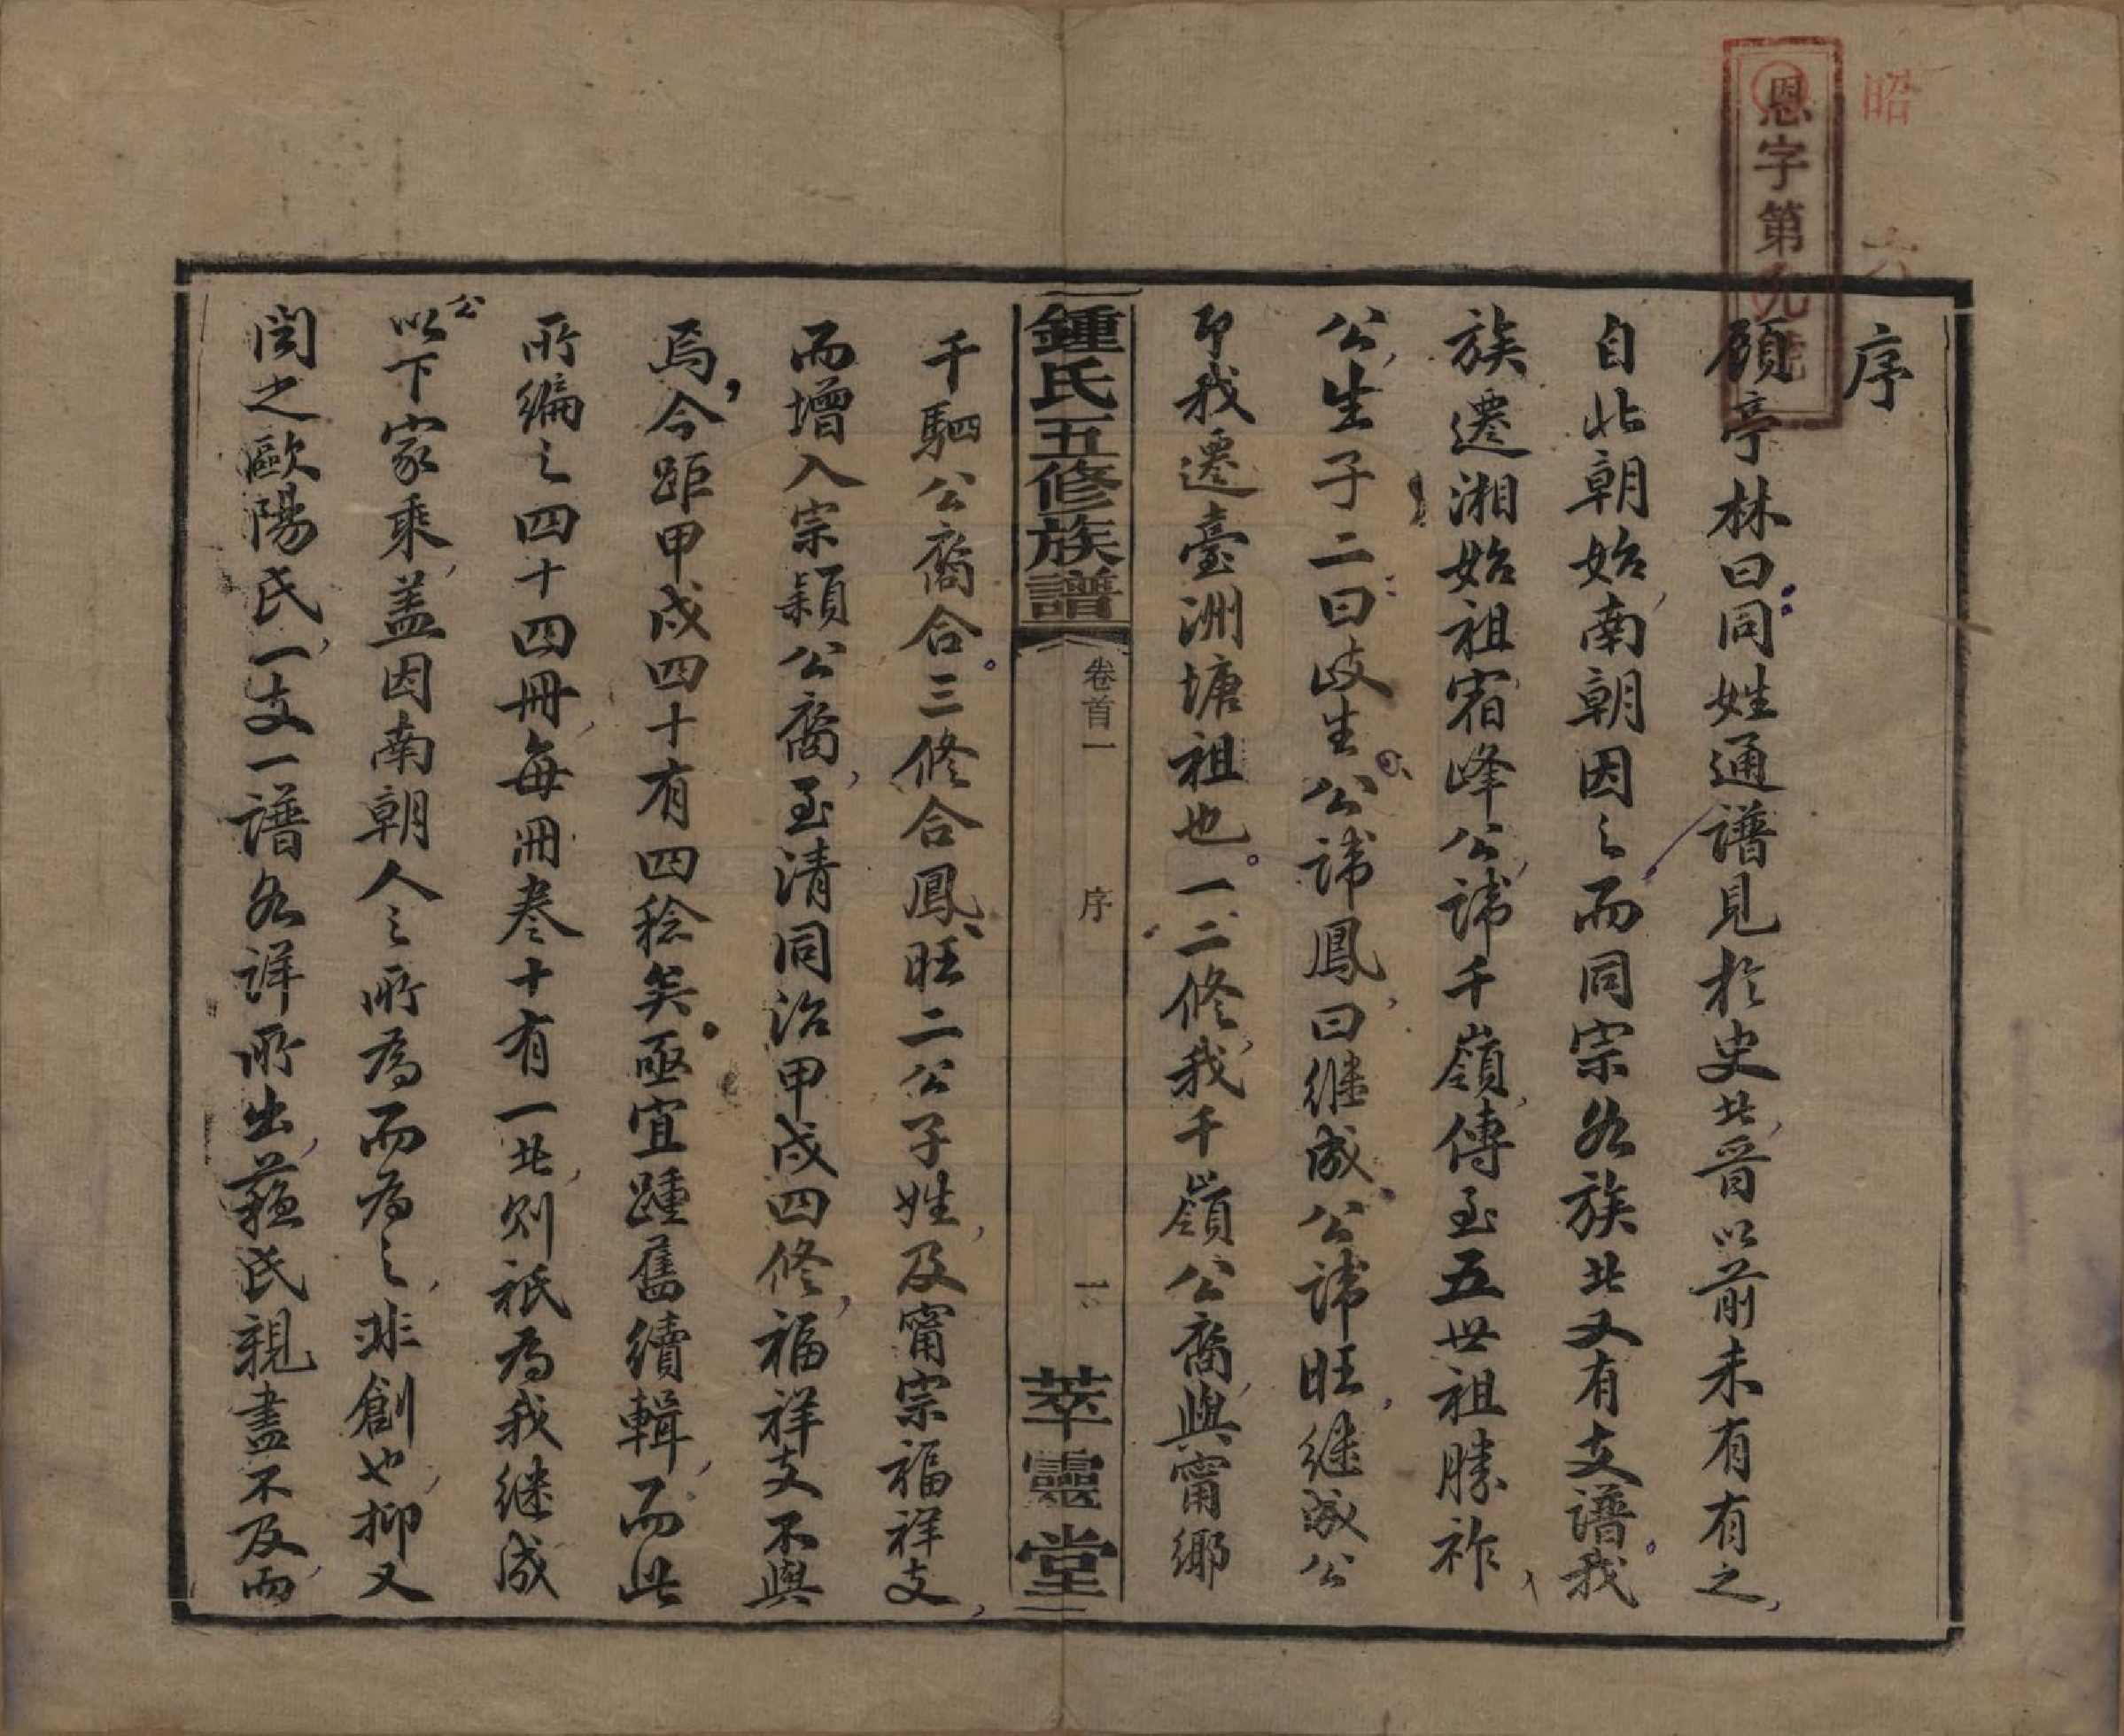 昭
六
恩字第九號
序
顧亭林曰同姓通譜見於史北晉以前未有有之
自北朝始南朝因之而同宗各族北又有支譜我
族遷湘始祖宿峰公諱千嶺傳至五世祖勝祚
公生子二曰岐生公諱鳳曰继成公諱旺继成公
即我遷臺洲塘祖也一二修我千嶺公裔與甯鄉
鍾氏五修族譜
卷首一
序
一
萃靈堂
千駟公裔合三修合鳳旺二公子姓及甯宗福祥支
而增入宗穎公裔至清同治甲戌四修福祥支不與
焉今距甲戌四十有四稔矣亟宜踵舊續輯而此
所編之四十四冊每冊卷十有一北則祇為我继成
公以下家乘盖因南朝人之所為而為之非創也抑又
閱之歐陽氏一支一譜各詳所出蘇氏親盡不及而